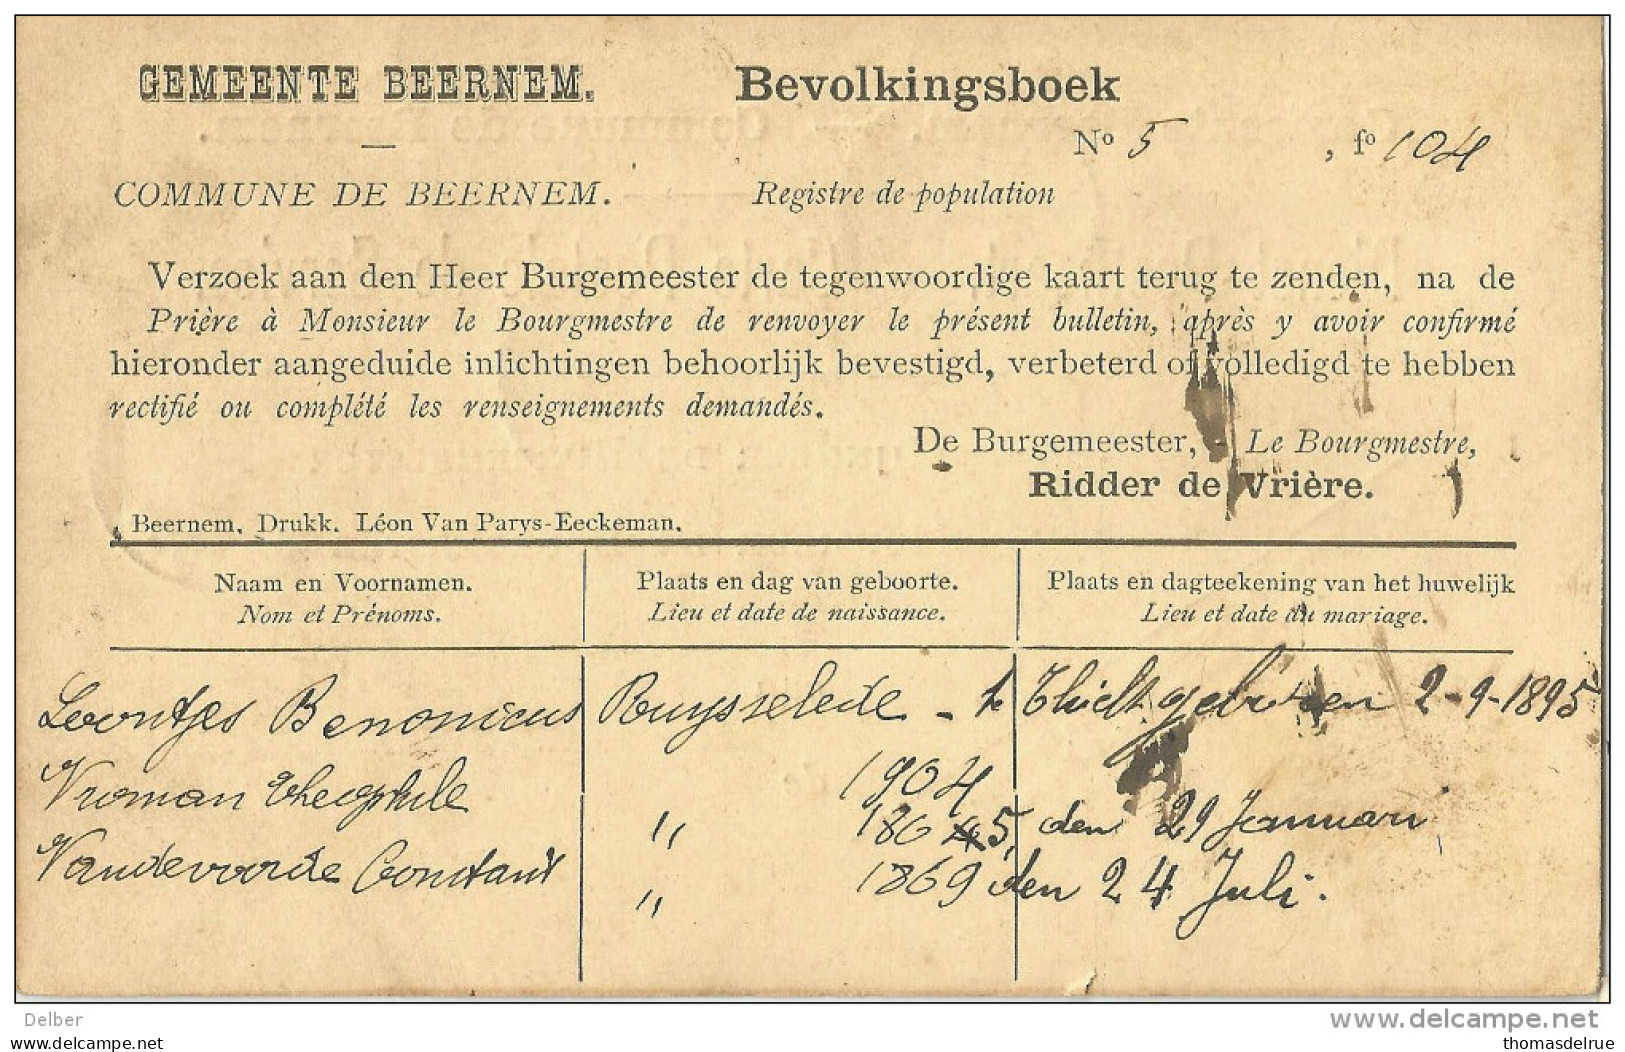 GEMEENTE BEERNEM. Bevolkingsboek
No 5, fo 104
COMMUNE DE BEERNEM. Registre de population
Verzoek aan den Heer Burgemeester de tegenwoordige kaart terug te zenden, na de
Prière à Monsieur le Bourgmestre de renvoyer le présent bulletin, après y avoir confirmé
hieronder aangeduide inlichtingen behoorlijk bevestigd, verbeterd of volledigd te hebben
rectifié ou complété les renseignements demandés.
De Burgemeester, - Le Bourgmestre,
Ridder de Vrière.
Beernem, Drukk. Léon Van Parys-Eeckeman.
Naam en Voornamen. Plaats en dag van geboorte. Plaats en dagteekening van het huwelijk
Nom et Prénoms. Lieu et date de naissance. Lieu et date du mariage.
Loontjes Benonicus Ruysselede - te Thielt geboren 2-9-1895
Vroman Theophile 1904
" 1865, den 29 Januari
Vandevoorde Constant " 1869 den 24 Juli.
Delber www.delcampe.net
www.delcampe.net thomasdelrue